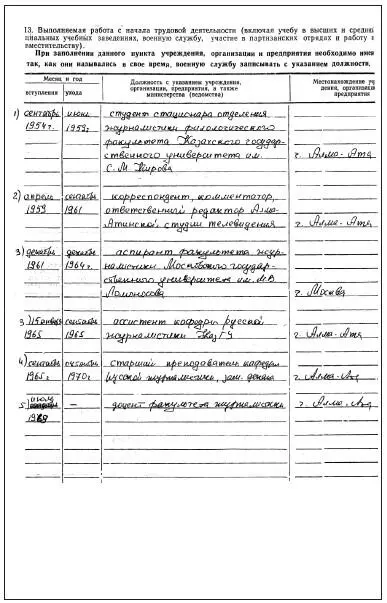 13. Выполняемая работа с начала трудовой деятельности (включая учебу в высших и средни
циальных учебных заведениях, военную службу, участие в партизанских отрядах и работу
вместительству).
При заполнении данного пункта учреждения, организации и предприятия необходимо имен
так, как они назывались в свое время, военную службу записывать с указанием должности.
Месяц и год
вступления
ухода
Должность с указанием учреждения,
организации, предприятия, а также
министерства (ведомства)
Местонахождение уч
дения, организаци
предприятия
1) сентябрь 1954г.
июнь 1959г.
студент стационара отделения
журналистики филологического
факультета Казахского государ-
ственного университета им.
С. М. Кирова
г. Алма-Ата
2) апрель 1959
сентябрь 1961
корреспондент, комментатор,
ответственный редактор Алма-
Атинской студии телевидения
г. Алма-Ата
3) декабрь 1961
декабрь 1964г.
аспирант факультета жур-
налистики Московского государ-
ственного университета им. М.В.
Ломоносова
г. Москва
3) 15 января 1965
сентябрь 1965
ассистент кафедры русской
журналистики КазГУ
г. Алма-Ата
4) сентябрь 1965г
1970г
старший преподаватель кафедры
русской журналистики, зам. декана
г. Алма-Ата
5) июль
—
доцент факультета журналистики
г. Алма-Ата